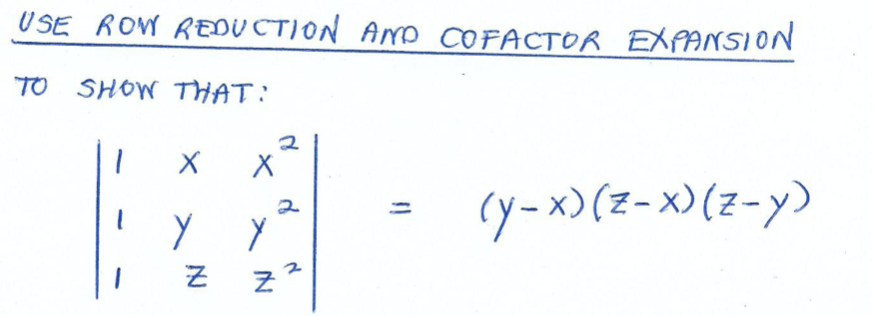 USE ROW REDUCTION AND COFACTOR EXPANSION
TO SHOW THAT:
| 1 x x² |
| 1 y y² | = (y-x)(z-x)(z-y)
| 1 z z² |